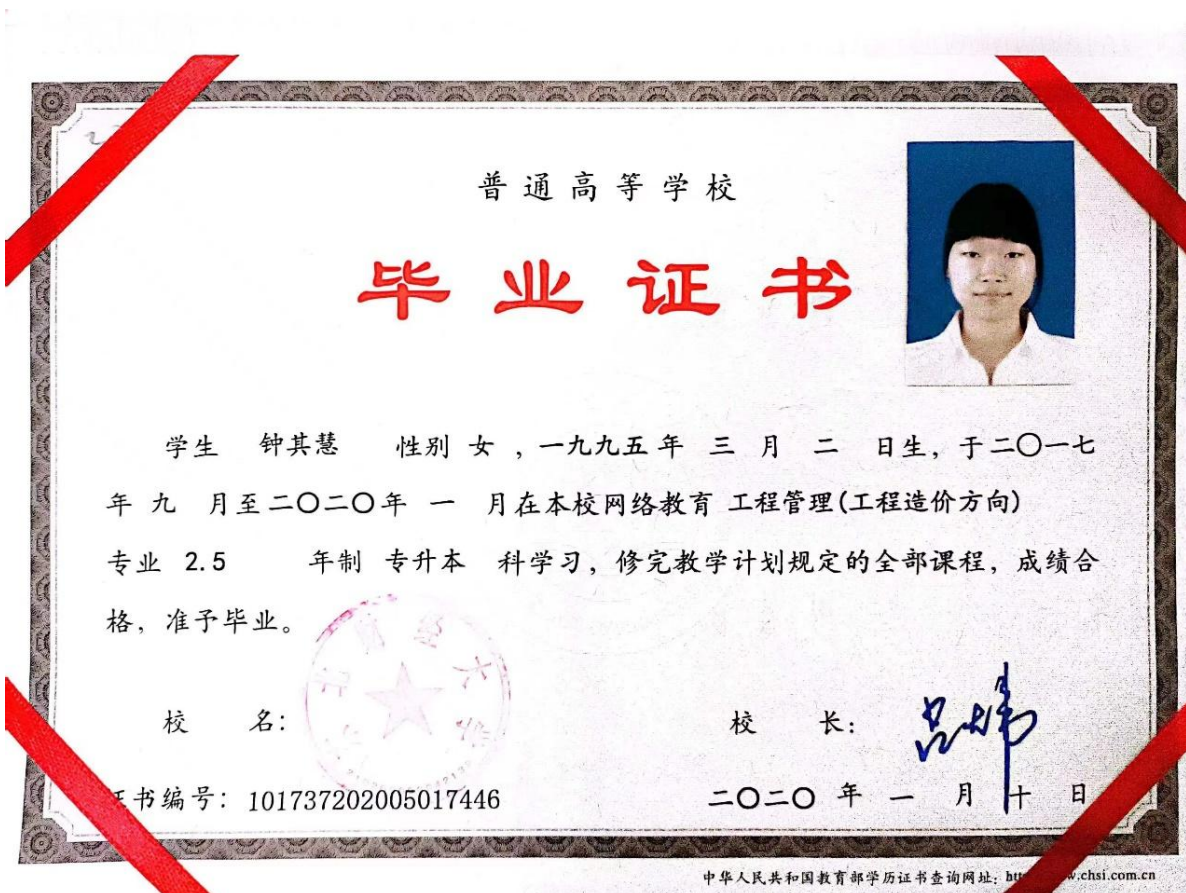 普通高等学校
毕业证书
学生 钟其慧 性别 女 ,一九九五年 三 月 二 日生, 于二〇一七
年 九 月至二〇二〇年 一 月在本校网络教育 工程管理(工程造价方向)
专业 2.5 年制 专升本 科学习, 修完教学计划规定的全部课程, 成绩合
格, 准予毕业。
校 名: 校 长:
书编号: 101737202005017446 二〇二〇 年 一 月 十 日
中华人民共和国教育部学历证书查询网址: .chsi.com.cn